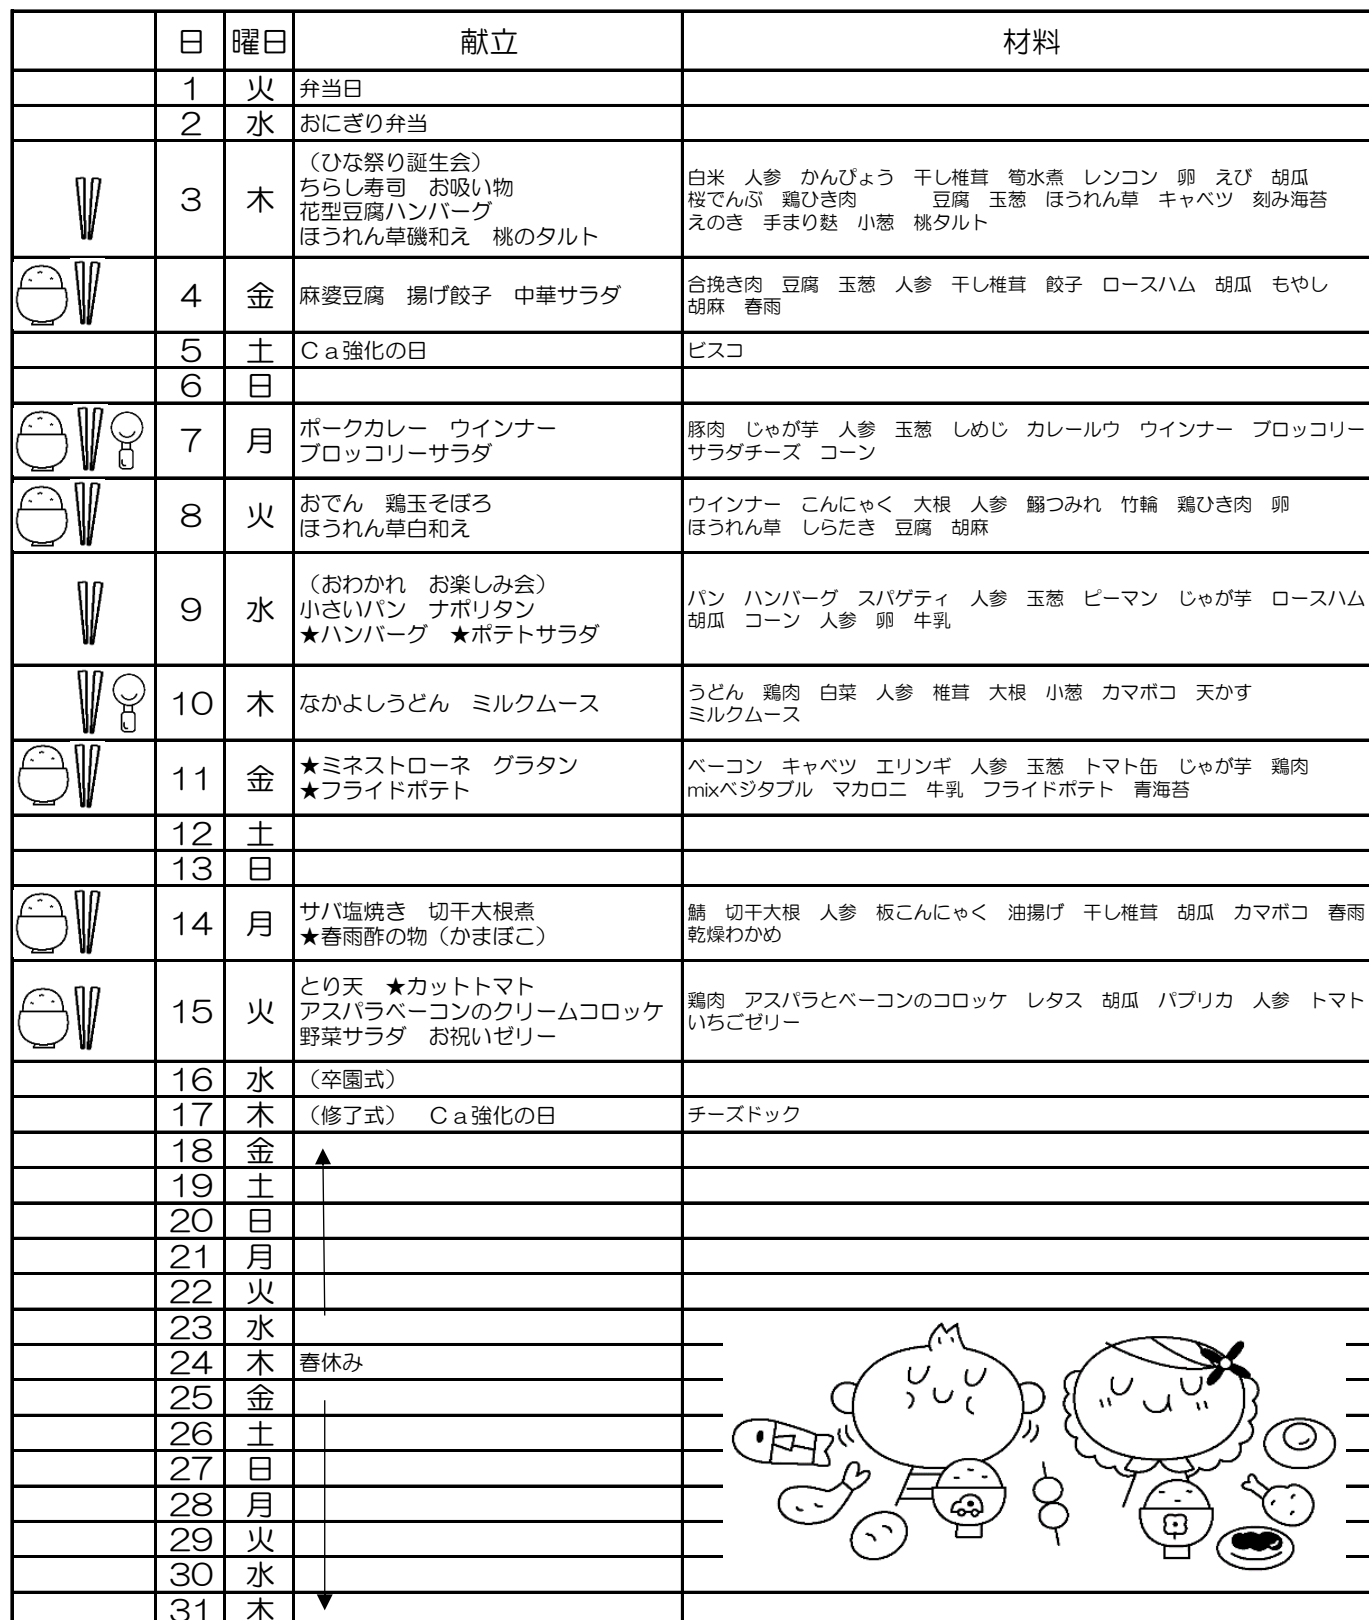 日 曜日 献立 材料
1 火 弁当日
2 水 おにぎり弁当
3 木
（ひな祭り誕生会）
ちらし寿司　お吸い物
花型豆腐ハンバーグ
ほうれん草磯和え　桃のタルト
白米　人参　かんぴょう　干し椎茸　筍水煮　レンコン　卵　えび　胡瓜
桜でんぶ　鶏ひき肉　　　　豆腐　玉葱　ほうれん草　キャベツ　刻み海苔
えのき　手まり麩　小葱　桃タルト
4 金 麻婆豆腐　揚げ餃子　中華サラダ
合挽き肉　豆腐　玉葱　人参　干し椎茸　餃子　ロースハム　胡瓜　もやし
胡麻　春雨
5 土 Ｃａ強化の日 ビスコ
6 日
7 月
ポークカレー　ウインナー
ブロッコリーサラダ
豚肉　じゃが芋　人参　玉葱　しめじ　カレールウ　ウインナー　ブロッコリー
サラダチーズ　コーン
8 火
おでん　鶏玉そぼろ
ほうれん草白和え
ウインナー　こんにゃく　大根　人参　鰯つみれ　竹輪　鶏ひき肉　卵
ほうれん草　しらたき　豆腐　胡麻
9 水
（おわかれ　お楽しみ会）
小さいパン　ナポリタン
★ハンバーグ　★ポテトサラダ
パン　ハンバーグ　スパゲティ　人参　玉葱　ピーマン　じゃが芋　ロースハム
胡瓜　コーン　人参　卵　牛乳
10 木 なかよしうどん　ミルクムース
うどん　鶏肉　白菜　人参　椎茸　大根　小葱　カマボコ　天かす
ミルクムース
11 金
★ミネストローネ　グラタン
★フライドポテト
ベーコン　キャベツ　エリンギ　人参　玉葱　トマト缶　じゃが芋　鶏肉
mixベジタブル　マカロニ　牛乳　フライドポテト　青海苔
12 土
13 日
14 月
サバ塩焼き　切干大根煮
★春雨酢の物（かまぼこ）
鯖　切干大根　人参　板こんにゃく　油揚げ　干し椎茸　胡瓜　カマボコ　春雨
乾燥わかめ
15 火
とり天　★カットトマト
アスパラベーコンのクリームコロッケ
野菜サラダ　お祝いゼリー
鶏肉　アスパラとベーコンのコロッケ　レタス　胡瓜　パプリカ　人参　トマト
いちごゼリー
16 水 （卒園式）
17 木 （修了式）　Ｃａ強化の日 チーズドック
18 金
19 土
20 日
21 月
22 火
23 水
24 木 春休み
25 金
26 土
27 日
28 月
29 火
30 水
31 木